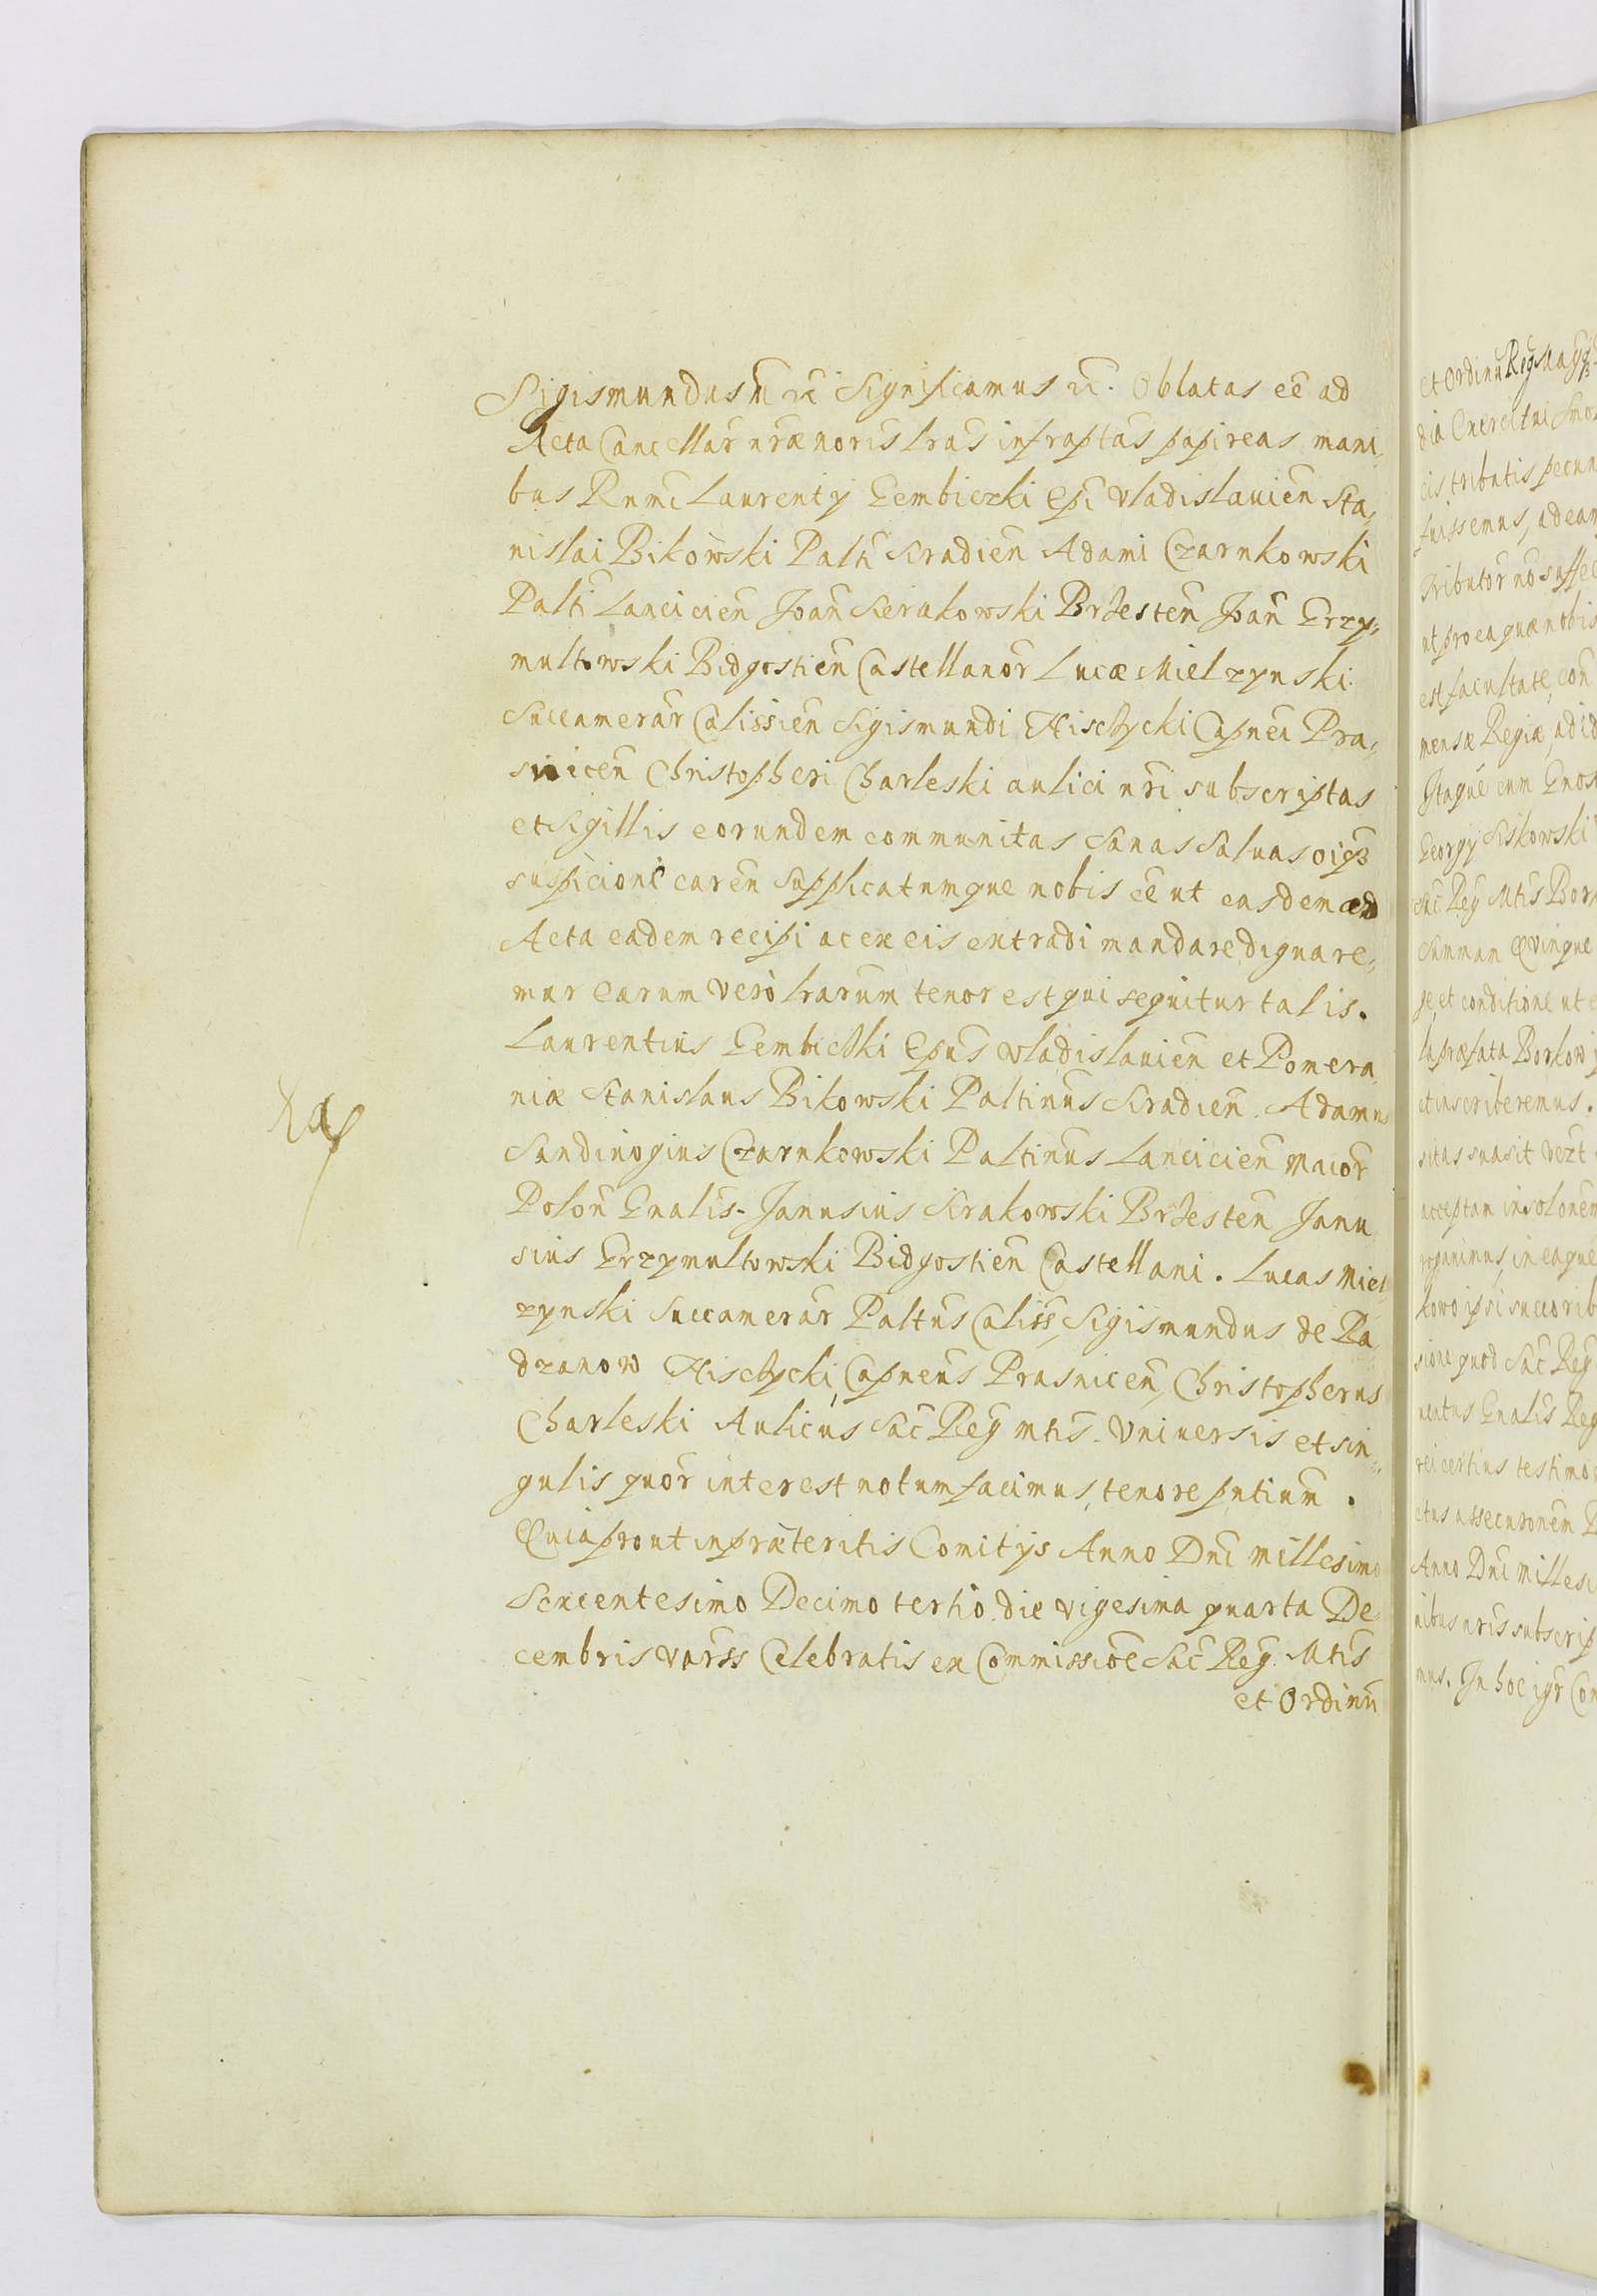 Sigismundus III etc Significamus etc. Oblatas ee ad
Acta Cancellar nrae noris lras infraptas papireas mani,
bus Rnmi Laurentÿ Gembiczki Epi Vladislauien Sta,
nislai Bikowski Palti Siradien Adami Czarnkowski
Palti Lancicien Joan Sierakowski Brzesten Joan Grzy,
multowski Bidgostien Castellanor Lucæ Mielzynski
Succamerar Calissien Sigismundi Hischycki Capnei Pra,
snicen Christopheri Charleski aulici nri subscriptas
et Sigillis eorundem communitas Sanas Saluas oiqз
suspicione caren Supplicatumque nobis ee ut easdem ad
Acta eadem recipi ac ex eis extradi mandare dignare,
mur Earum Vero lrarum tenor est qui sequitur talis.
Laurentius Gembicki Epus Vladislauien et Pomera,
niæ Stanislaus Bikowski Paltinus Siradien. Adamus
Sandiuogius Czarnkowski Paltinus Lancicien Maior
Polon Gnalis. Janusius Sirakowski Brzesten Janu
sius Grzymultowski Bidgostien Castellani. Lucas Miel,
zynski Succamerar Paltus Caliss, Sigismundus de Ra,
dzanow Hischycki, Capneus Prasnicen, Christopherus
Charleski Aulicus Sac Reg Mtis. Vniuersis et sin,
gulis quor interest notum facimus, tenore pntium.
Quia prout in præteritis Comitÿs Anno Dni Millesimo
Sexcentesimo Decimo tertio die vigesima quarta De
cembris Varss Celebratis ex Commissioe Sac Reg. Mtis
et Ordinu
et Ordinu Reg
cis tributis pecun
fuissemus, ad eam
Tributor no suffec
ut pro ea quæ nobis
est facultate, con
mensæ Regiæ, ad id
Itaque cum Gnos
Georgÿ Siskowski
Sac Reg Mtis Bor
Summam Quinque
ge, et conditione ut e
et inscriberemus.
sitas suasit
acceptam
in eaque
kowo ipsi succorib
sione quod Sac Reg
uentus Gnalis Reg
rei certius testimo
Anno Dni Milles
nibus nris subscrip
mus. In hoc igr Com